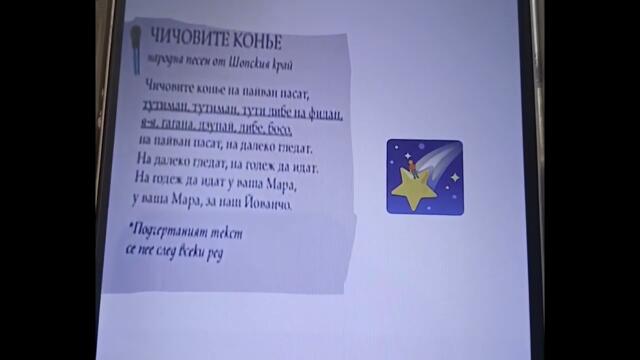 ЧИЧОВИТЕ КОНЬЕ
народна песен от Шопския край
Чичовите конье на пайван пасат,
тутиман, тутиман, тути либе на филан,
я-я, гагана, дзупай, либе, босо,
на пайван пасат, на далеко гледат.
На далеко гледат, на годеж да идат.
На годеж да идат у ваша Мара,
у ваша Мара, за наш Йованчо.
*Подчертаният текст
се пее след всеки ред